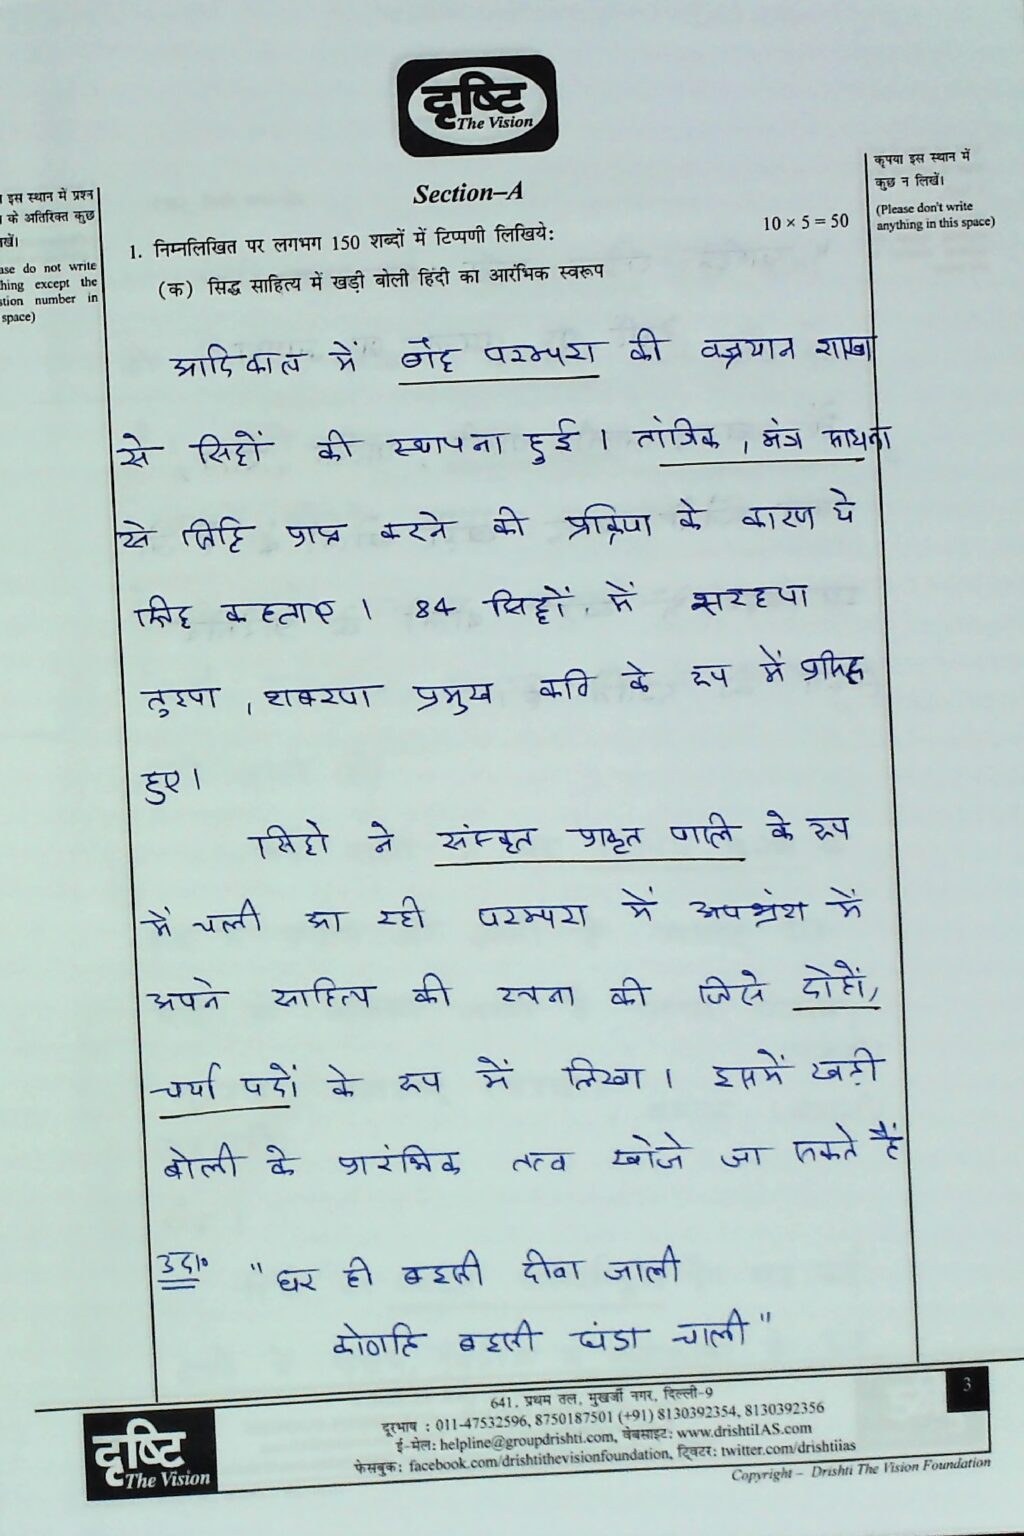 दृष्टि
The Vision
Section–A
इस स्थान में प्रश्न
के अतिरिक्त कुछ
ase do not write
thing except the
stion number in
space)
कृपया इस स्थान में
कुछ न लिखें।
(Please don't write
anything in this space)
1. निम्नलिखित पर लगभग 150 शब्दों में टिप्पणी लिखिये: 10 × 5 = 50
(क) सिद्ध साहित्य में खड़ी बोली हिंदी का आरंभिक स्वरूप
आदिकाल में बौद्ध परम्परा की वज्रयान शाखा
से सिद्धों की स्थापना हुई। तांत्रिक, मंत्र साधना
से सिद्धि प्राप्त करने की प्रक्रिया के कारण ये
सिद्ध कहलाए। 84 सिद्धों में सरहपा
लुइपा, शबरपा प्रमुख कवि के रूप में प्रसिद्ध
हुए।
सिद्धो ने संस्कृत प्राकृत पालि के रूप
में चली आ रही परम्परा में अपभ्रंश में
अपने साहित्य की रचना की जिसे दोहों,
चर्या पदों के रूप में लिखा। इसमें खड़ी
बोली के प्रारंभिक तत्व खोजे जा सकते हैं
उदा० "घर ही बइसी दीवा जाली
कोणहि बइसी घंडा चाली"
3
दृष्टि
The Vision
641, प्रथम तल, मुखर्जी नगर, दिल्ली-9
दूरभाष : 011-47532596, 8750187501 (+91) 8130392354, 8130392356
ई-मेल: helpline@groupdrishti.com, वेबसाइट: www.drishtiIAS.com
फेसबुक: facebook.com/drishtithevisionfoundation, ट्विटर: twitter.com/drishtiias
Copyright – Drishti The Vision Foundation